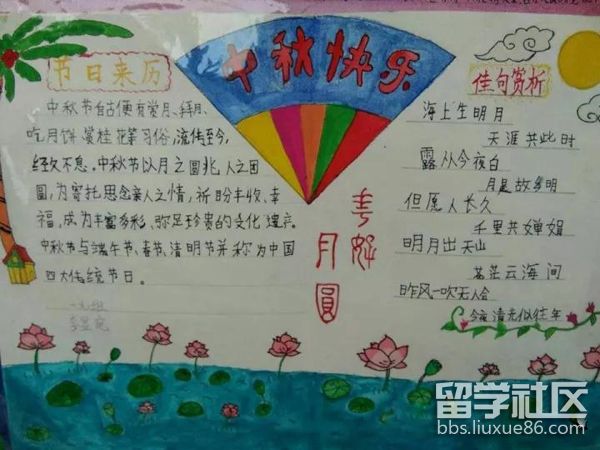 中秋快乐
节日来历
中秋节自古便有赏月、拜月、
吃月饼、赏桂花等习俗,流传至今,
经久不息。中秋节以月之圆兆人之团
圆,为寄托思念亲人之情,祈盼丰收、幸
福,成为丰富多彩、弥足珍贵的文化遗产。
中秋节与端午节、春节、清明节并称为中国
四大传统节日。
月圆
佳句赏析
海上生明月
天涯共此时
露从今夜白
月是故乡明
但愿人长久
千里共婵娟
明月出天山
苍茫云海间
昨风一吹无人会
今夜清光似往年
留学社区
bbs.liuxue86.com